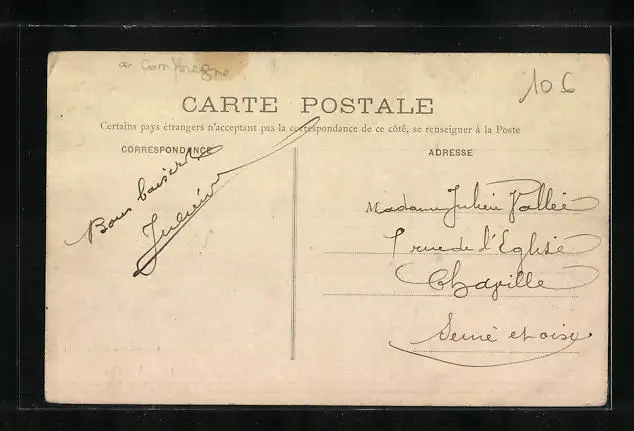 a Compiegne
10 c
CARTE POSTALE
Certains pays étrangers n'acceptant pas la correspondance de ce côté, se renseigner à la Poste
CORRESPONDANCE
Bons baisers
Julien
ADRESSE
Madame Julien Vallée
7 rue de l'Eglise
Chaville
Seine et oise